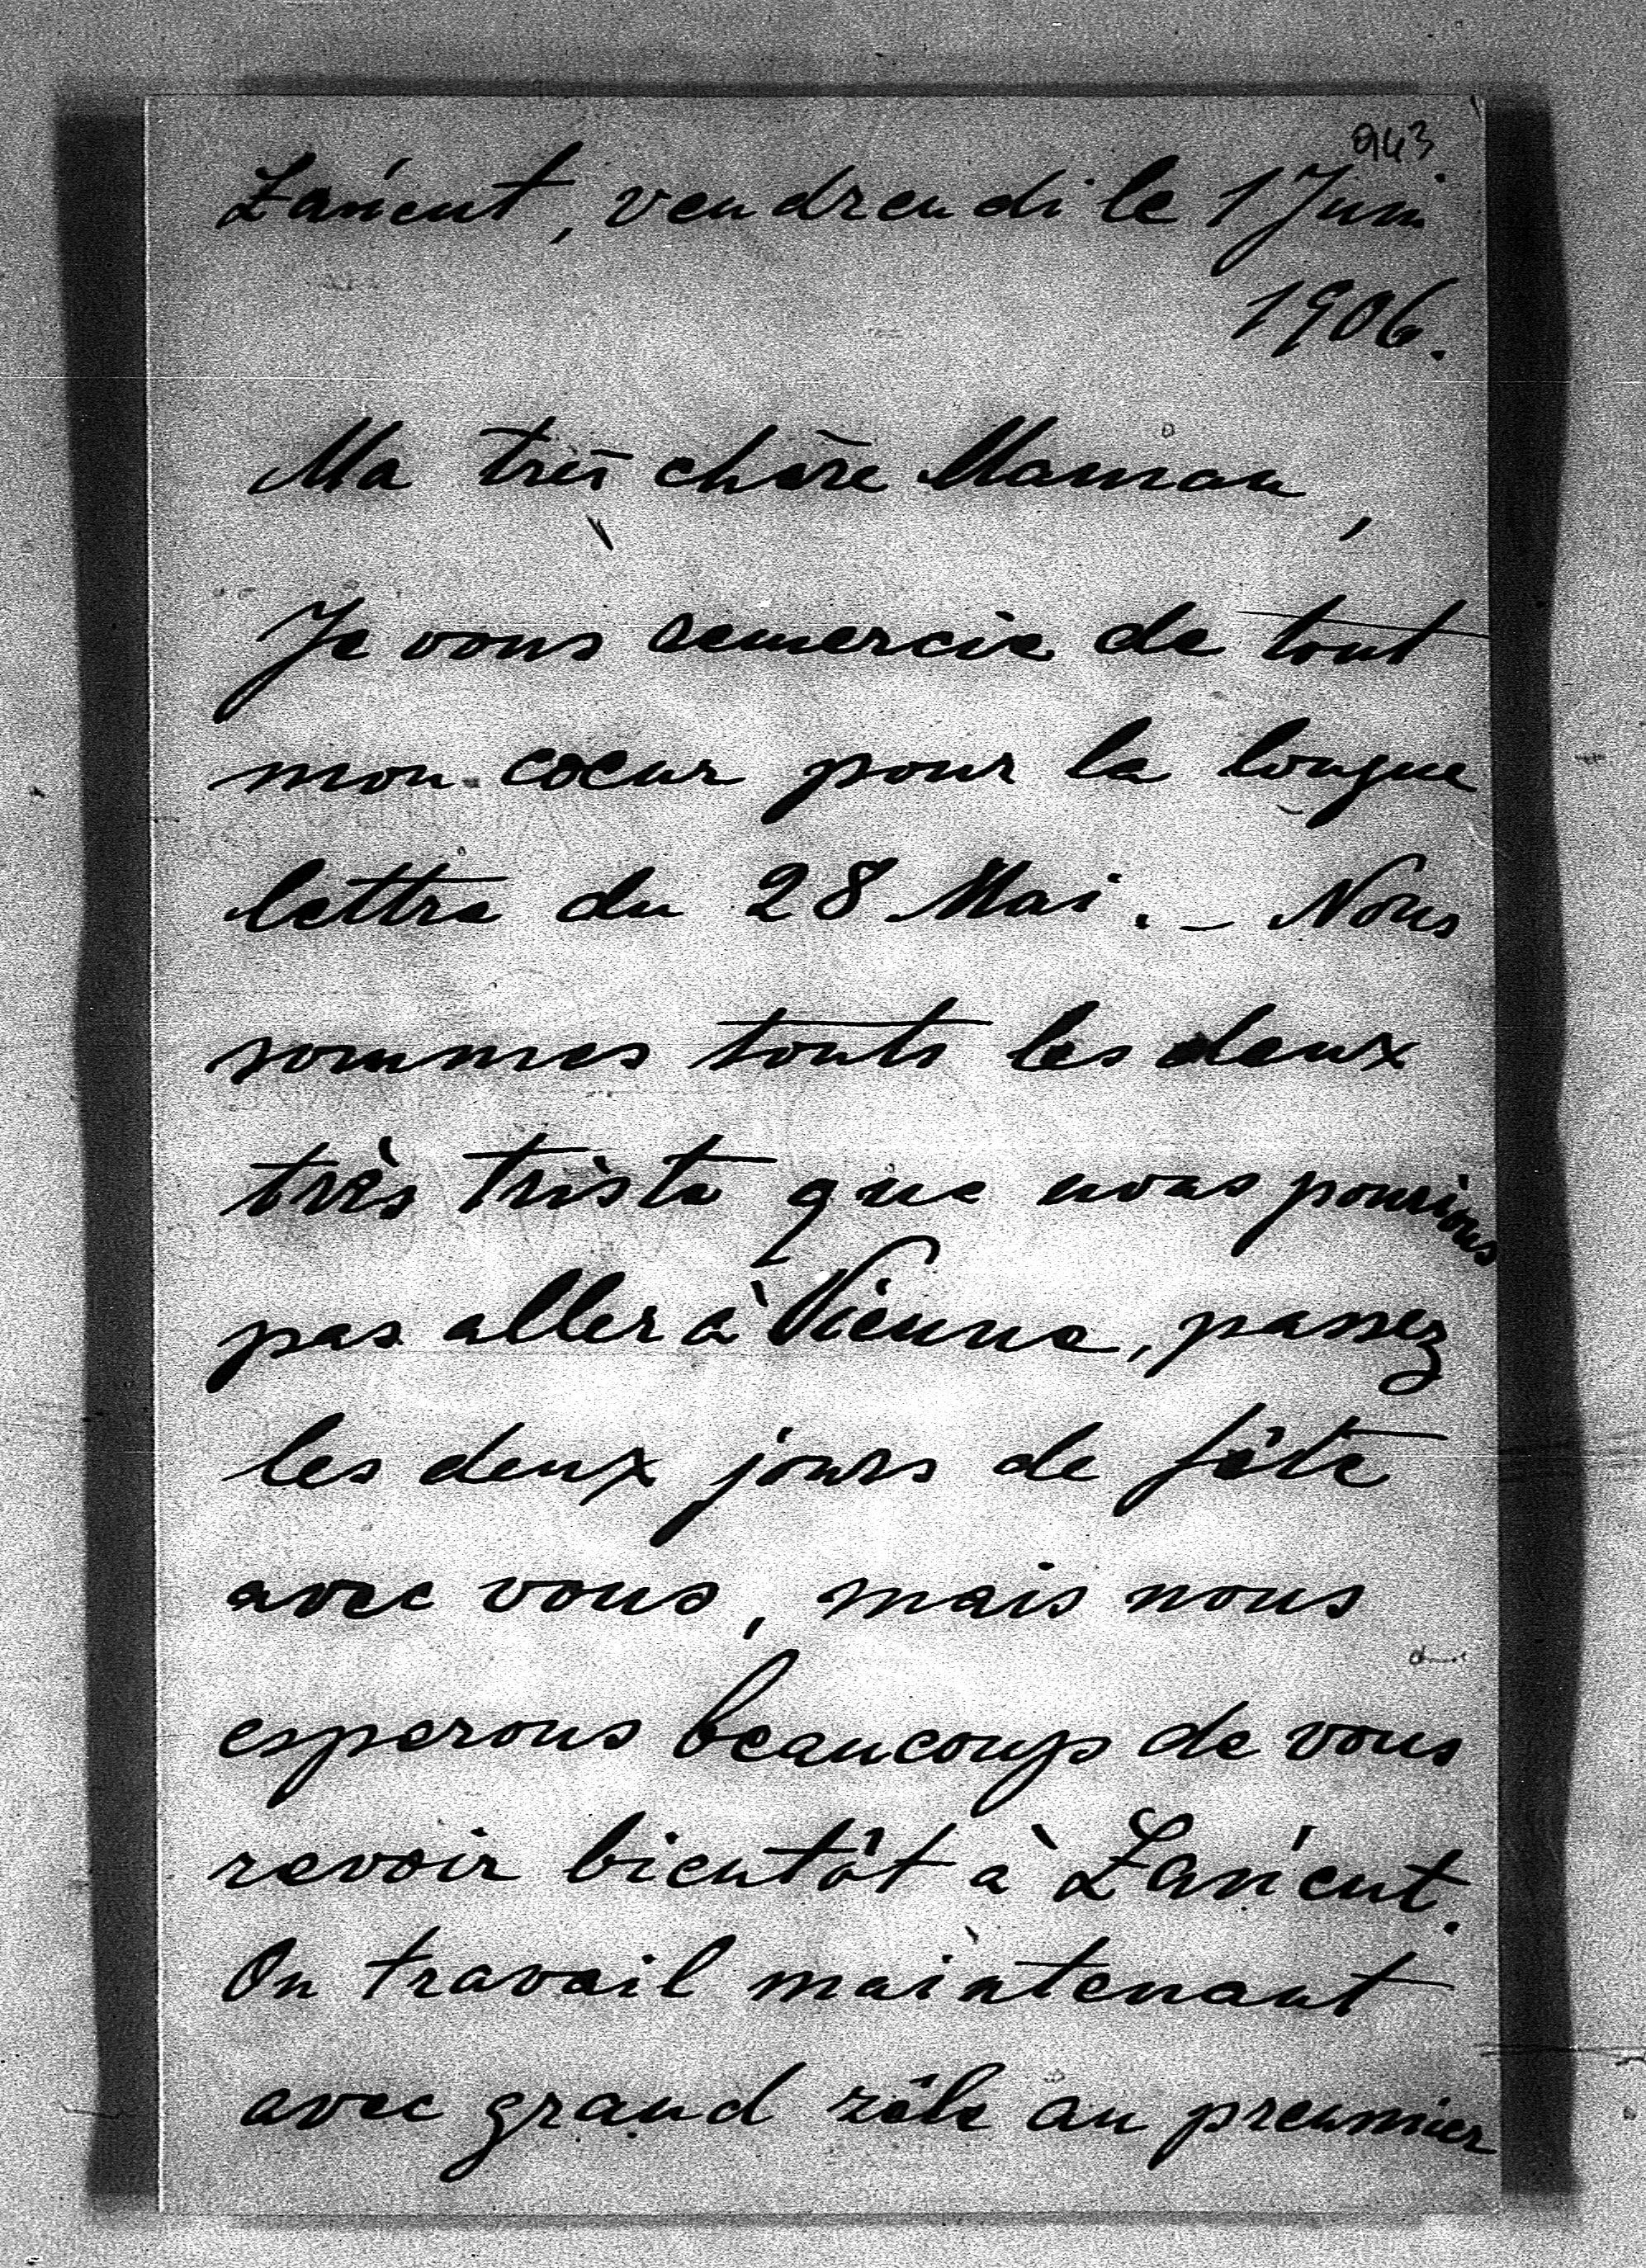 943
Łańcut, vendrendi le 1 Juin
1906.
Ma très chère Maman,
Je vous remercie de tout
mon coeur pour la longue
lettre du 28 Mai. – Nous
sommes touts les deux
très triste que nous pourions
pas aller à Vienne, passez
les deux jours de fête
avec vous, mais nous
esperons beaucoup de vous
revoir bientôt à Łańcut.
On travail maintenant
avec grand zêle au preumier